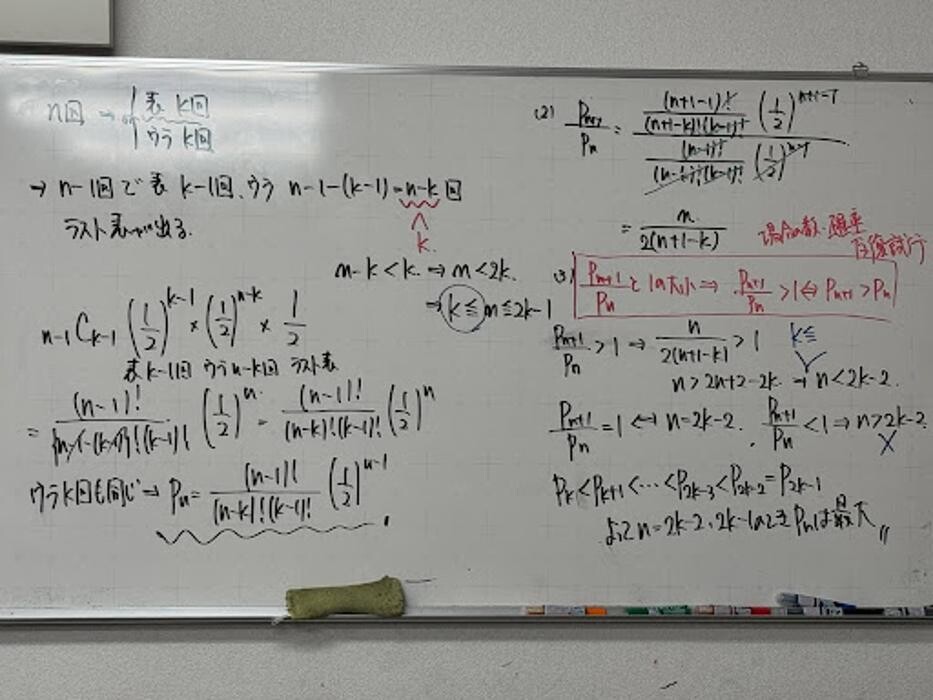 n回 → { 表 k回
ウラ k回
→ n-1回で表 k-1回、ウラ n-1-(k-1)=n-k回
k
ラスト表が出る.
n-k<k ⇒ n<2k.
⇒ k≦n≦2k-1
n-1Ck-1 (1/2)^k-1 × (1/2)^n-k × 1/2
表k-1回 ウラn-k回 ラスト表
= (n-1)!/(n-1-(k-1))!(k-1)! (1/2)^n = (n-1)!/(n-k)!(k-1)! (1/2)^n
ウラk回も同じ → Pn = (n-1)!/(n-k)!(k-1)! (1/2)^n-1
(2) Pn+1/Pn = (n+1-1)!/(n+1-k)!(k-1)! (1/2)^n+1-1 / (n-1)!/(n-k)!(k-1)! (1/2)^n-1
= n/2(n+1-k)
場合の数・確率
反復試行
(3) Pn+1/Pn と 1の大小 ⇒ Pn+1/Pn >1 ⇔ Pn+1 > Pn
Pn+1/Pn >1 ⇒ n/2(n+1-k) >1 k≦
n>2n+2-2k. → n<2k-2.
Pn+1/Pn =1 ↔ n=2k-2. Pn+1/Pn <1 ⇒ n>2k-2
×
Pk<Pk+1<…<P2k-3<P2k-2=P2k-1
よって n=2k-2, 2k-1のとき Pnは最大 〃